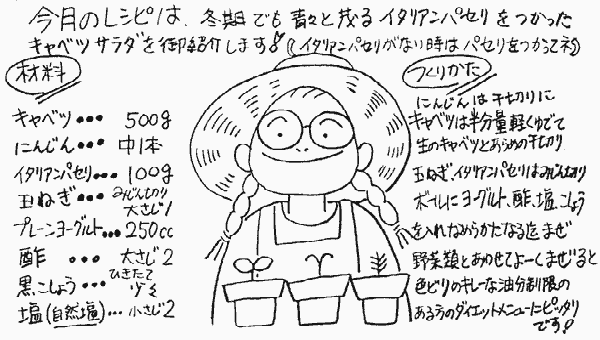 今月のレシピは、冬期でも青々と茂るイタリアンパセリをつかった
キャベツサラダを御紹介します!(イタリアンパセリがない時はパセリをつかってネ)
材料
キャベツ・・・ 500g
にんじん・・・ 中1本
イタリアンパセリ・・・100g
玉ねぎ・・・みじん切り 大さじ1
プレーンヨーグルト・・・250cc
酢 ・・・ 大さじ2
黒こしょう・・・ひきたて 少々
塩(自然塩)・・・小さじ2
つくりかた
にんじんは千切りに
キャベツは半分量軽くゆでて
生のキャベツとあらめの千切り
玉ねぎ、イタリアンパセリはみじん切り
ボールにヨーグルト、酢、塩、こしょう
を入れなめらかになる迄まぜ
野菜類とあわせてよーくまぜると
色どりのキレーな油分制限の
ある方のダイエットメニューにピッタリ
です!